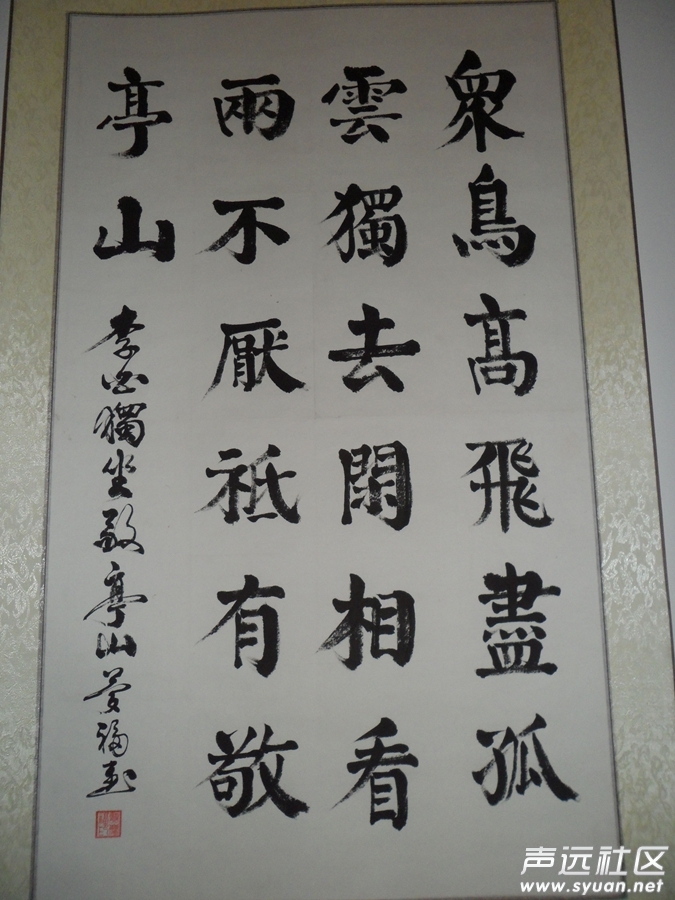 眾鳥高飛盡孤
雲獨去閑相看
兩不厭祗有敬
亭山
李白獨坐敬亭山
声远社区
www.syuan.net